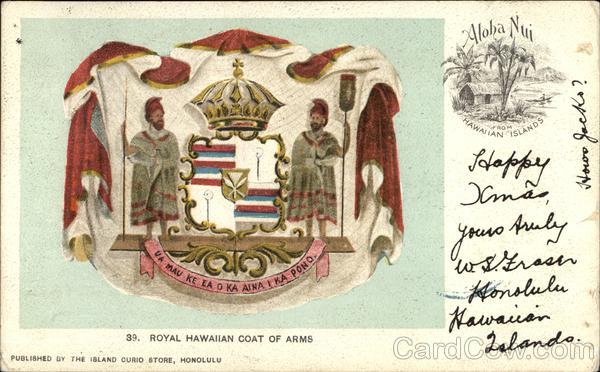 Aloha Nui
FROM
HAWAIIAN ISLANDS
Hows Jacks?
Happy
Xmas,
yours truly
W. S. Fraser
Honolulu
Hawaiian
Islands.
UA MAU KE EA O KA AINA I KA PONO.
39. ROYAL HAWAIIAN COAT OF ARMS
PUBLISHED BY THE ISLAND CURIO STORE, HONOLULU
CardCow.com